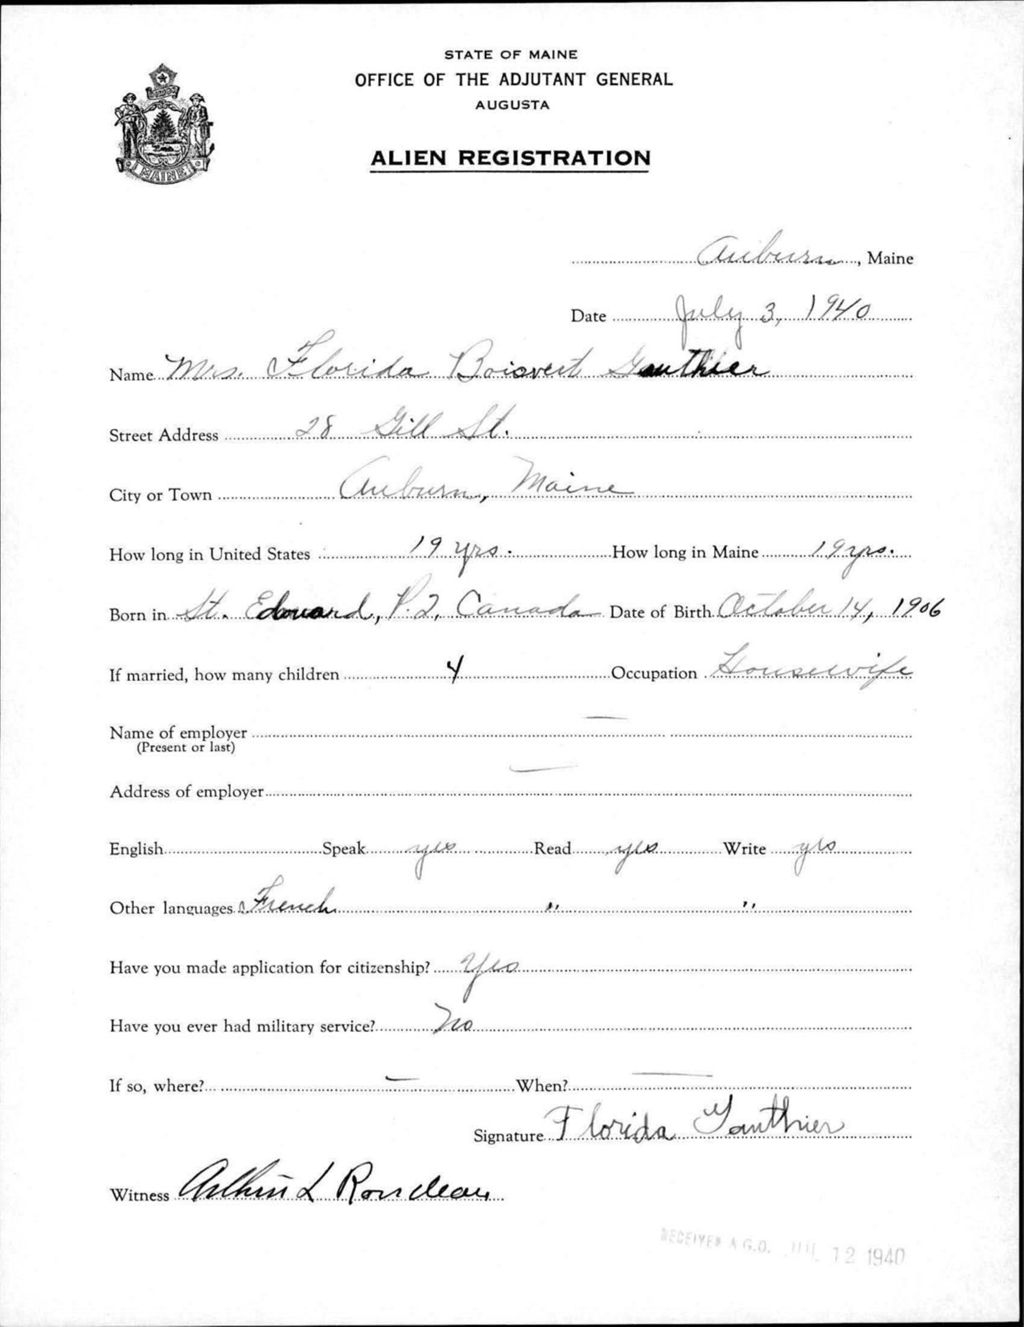 STATE OF MAINE
OFFICE OF THE ADJUTANT GENERAL
AUGUSTA
ALIEN REGISTRATION
MAINE
Auburn, Maine
Date July 3, 1940
Name Mrs. Florida Boisvert Gauthier
Street Address 28 Gill St.
City or Town Auburn, Maine
How long in United States 19 yrs. How long in Maine 19 yrs.
Born in St. Edouard, P.Q. Canada Date of Birth October 14, 1906
If married, how many children 4 Occupation Housewife
Name of employer —
(Present or last)
Address of employer —
English Speak yes Read yes Write yes
Other languages French " "
Have you made application for citizenship? Yes
Have you ever had military service? No
If so, where? — When? —
Signature Florida Gauthier
Witness Arthur L Rondeau
RECEIVED A.G.O. JUL 12 1940